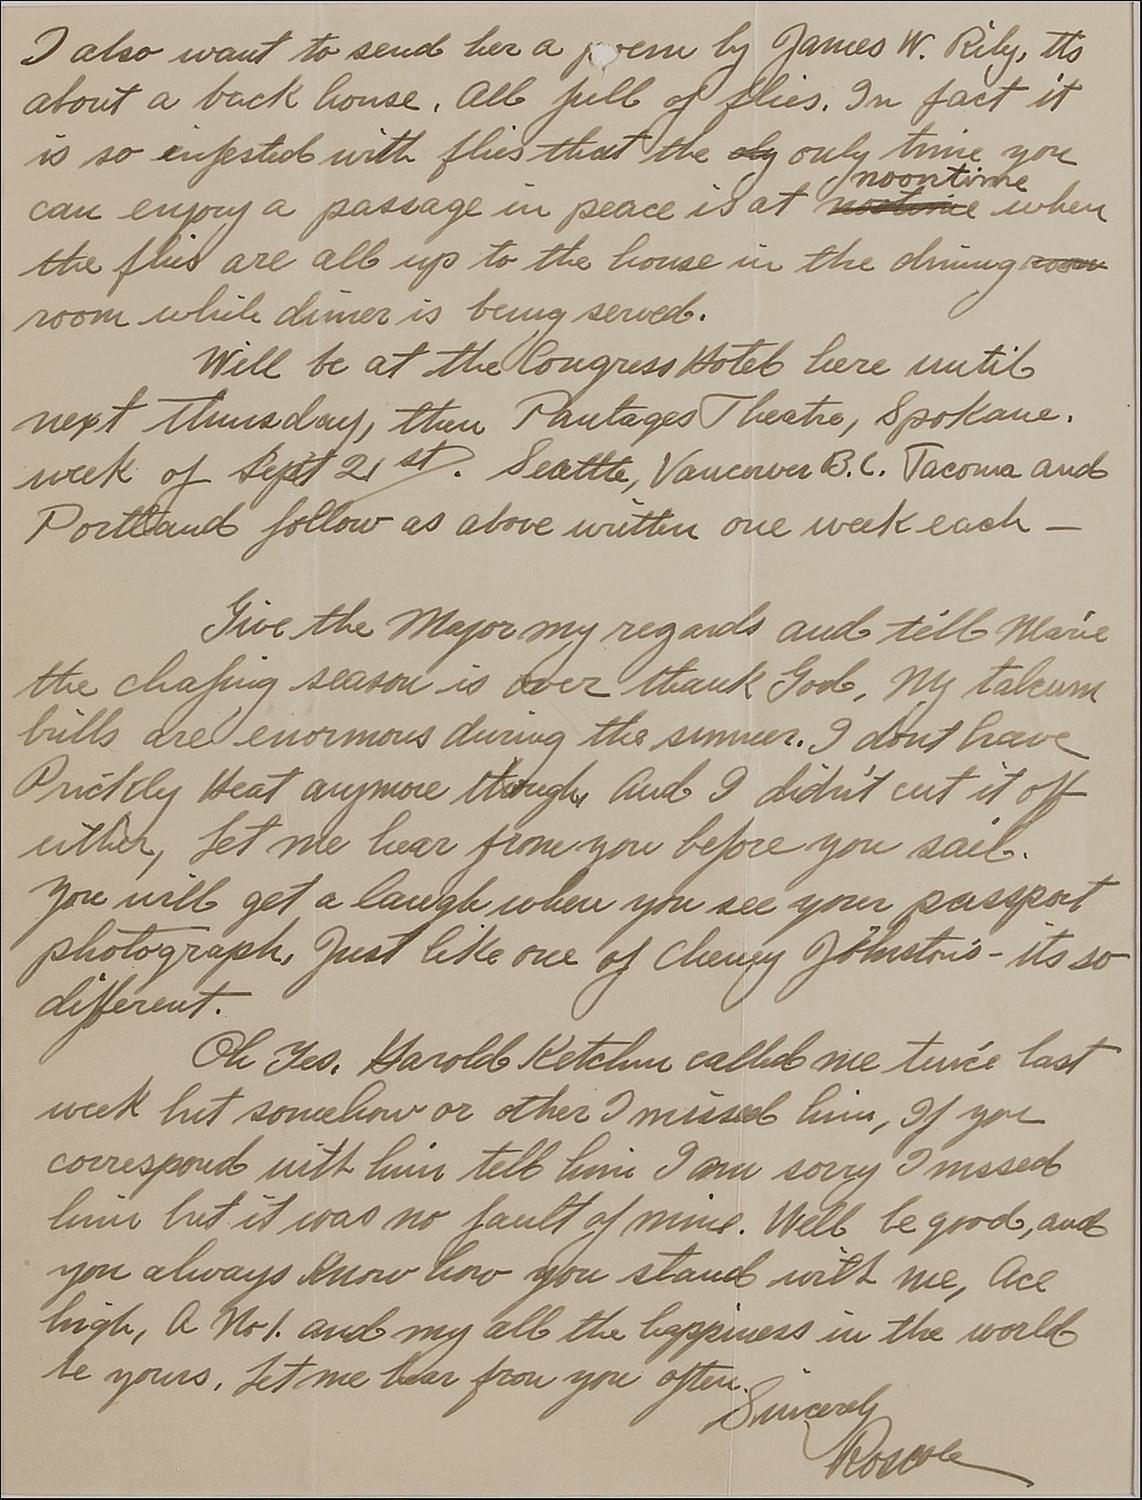 I also want to send her a poem by James W. Rily, its
about a back house. All full of flies. In fact it
is so infested with flies that the oly only time you
noontime
can enjoy a passage in peace is at nootime when
the flies are all up to the house in the dining room
room while dinner is being served.
Will be at the Congress Hotel here until
next Thursday, then Pantages Theatre, Spokane.
week of Sept 21st. Seattle, Vancouver B.C. Tacoma and
Portland follow as above written one week each —
Give the Major my regards and tell Marie
the chafing season is over thank God, My talcum
bills are enormous during the summer. I dont have
Prickly Heat anymore though, And I didn't cut it off
either, Let me hear from you before you sail.
You will get a laugh when you see your passport
photograph, Just like one of Cheney Johnston's - its so
different.
Oh Yes. Harold Ketchum called me twice last
week but somehow or other I missed him, If you
correspond with him tell him I am sorry I mssed
him but it was no fault of mine. Well be good, and
you always know how you stand with me, Ace
high, A No 1. and my all the happiness in the world
be yours. Let me hear from you often.
Sincerely
Roscoe